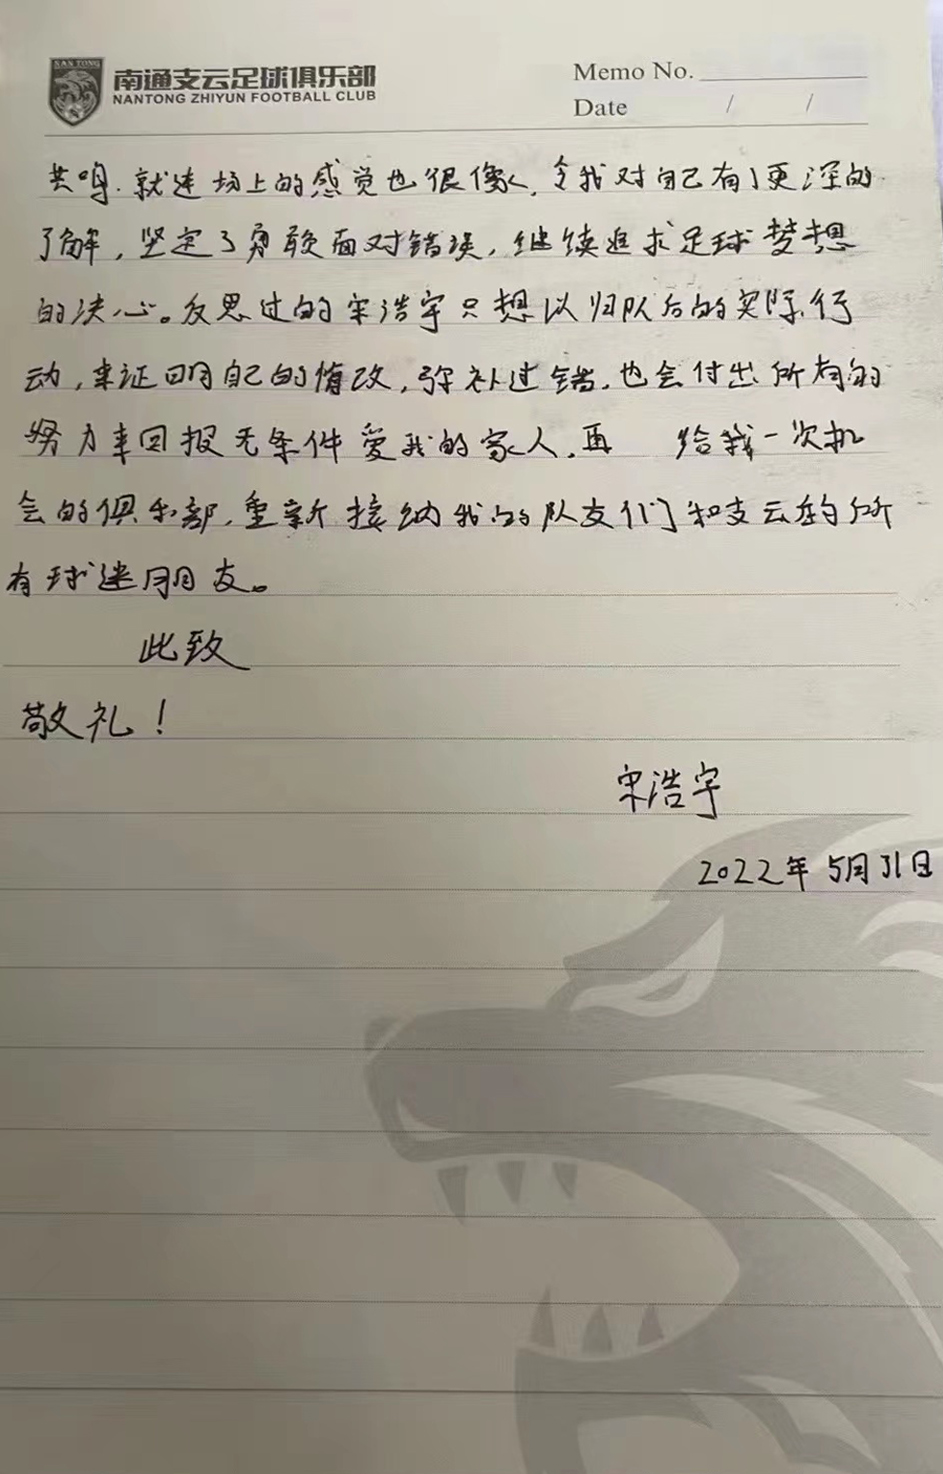 NAN TONG
南通支云足球俱乐部
NANTONG ZHIYUN FOOTBALL CLUB
Memo No.
Date / /
共鸣.就连场上的感觉也很像,令我对自己有了更深的
了解,坚定了勇敢面对错误,继续追求足球梦想
的决心。反思过的宋浩宇只想以归队后的实际行
动,来证明自己的悔改,弥补过错.也会付出所有的
努力来回报无条件爱我的家人,再 给我一次机
会的俱乐部,重新接纳我的队友们和支云的所
有球迷朋友。
此致
敬礼!
宋浩宇
2022年5月31日